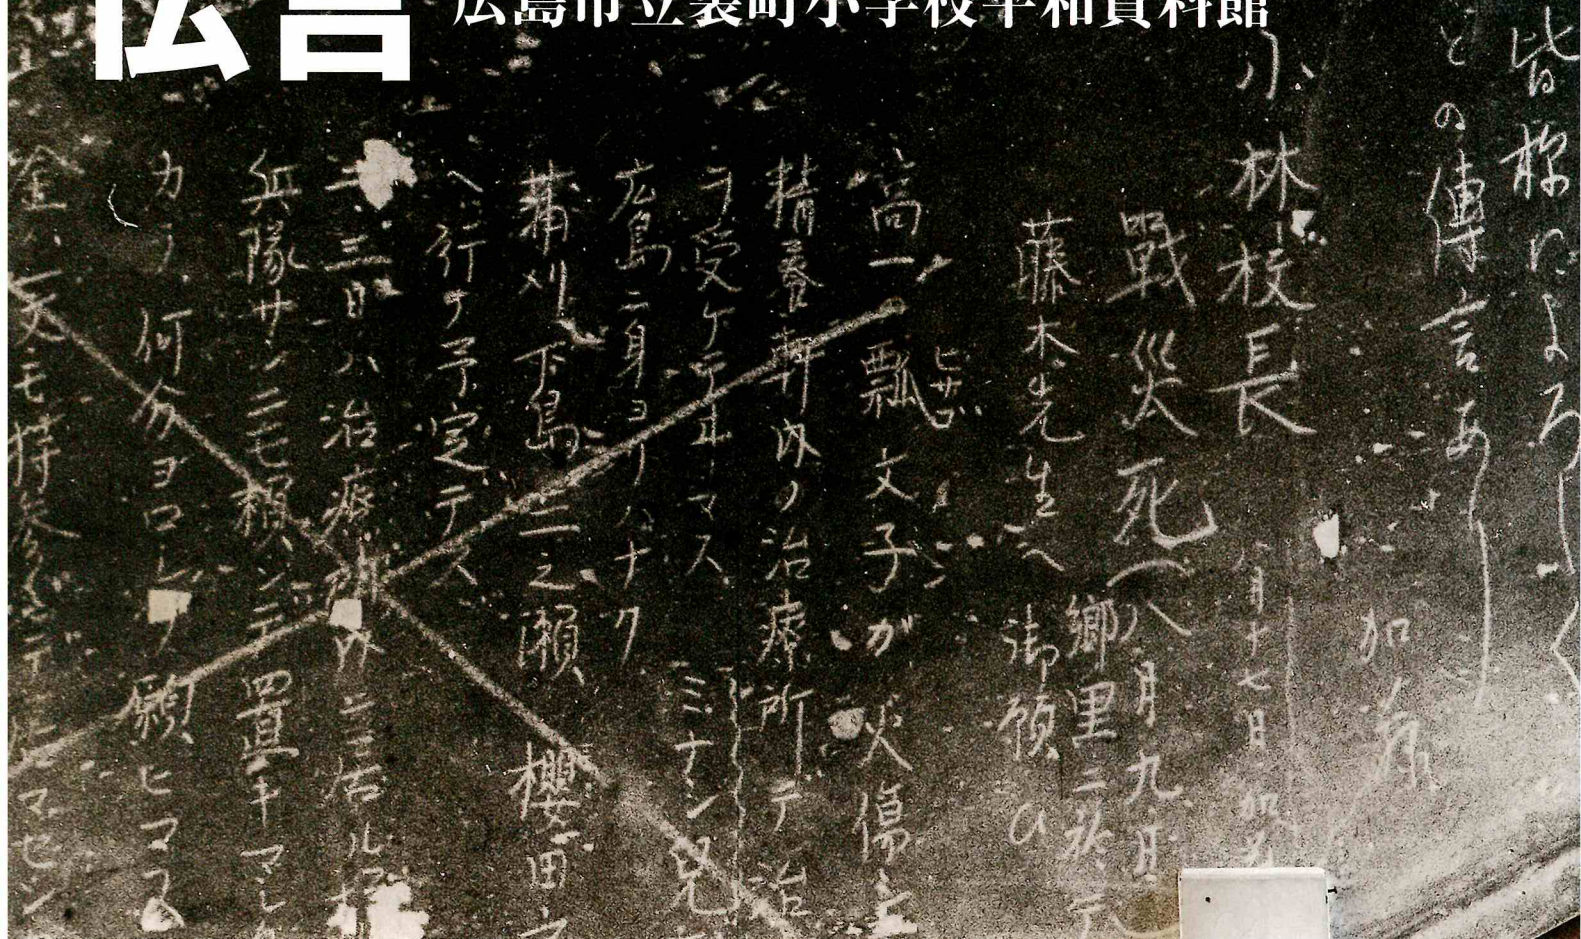 伝言
広島市立袋町小学校平和資料館
皆様によろしく
との傳言あり
加藤
小林校長
八月十七日
戰災死(八月九日
郷里ニ於テ
藤木先生へ 御願ひ
高一 瓢 文子が火傷
ヒサゴ
精養軒内ノ治療所デ治
ヲ受ケテ井マス
ミナシ兒
広島ニ身ヨリハナク
蒲刈下島三之瀬 櫻田
へ行ク予定デス
二三日ハ治療所内ニ居ル
兵隊サンニモ頼ンデ置キマシ
カラ 何分ヨロシク願ヒマス
金ハ一文モ持
マセン